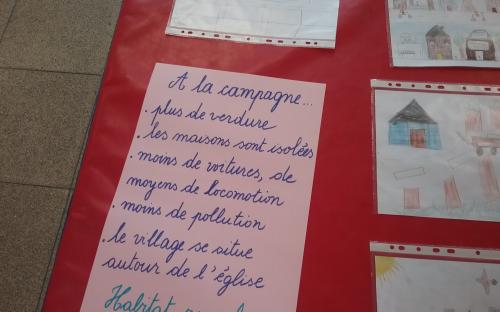 A la campagne...
. plus de verdure
. les maisons sont isolées
. moins de voitures, de
moyens de locomotion
. moins de pollution
. le village se situe
autour de l'église
Habitat